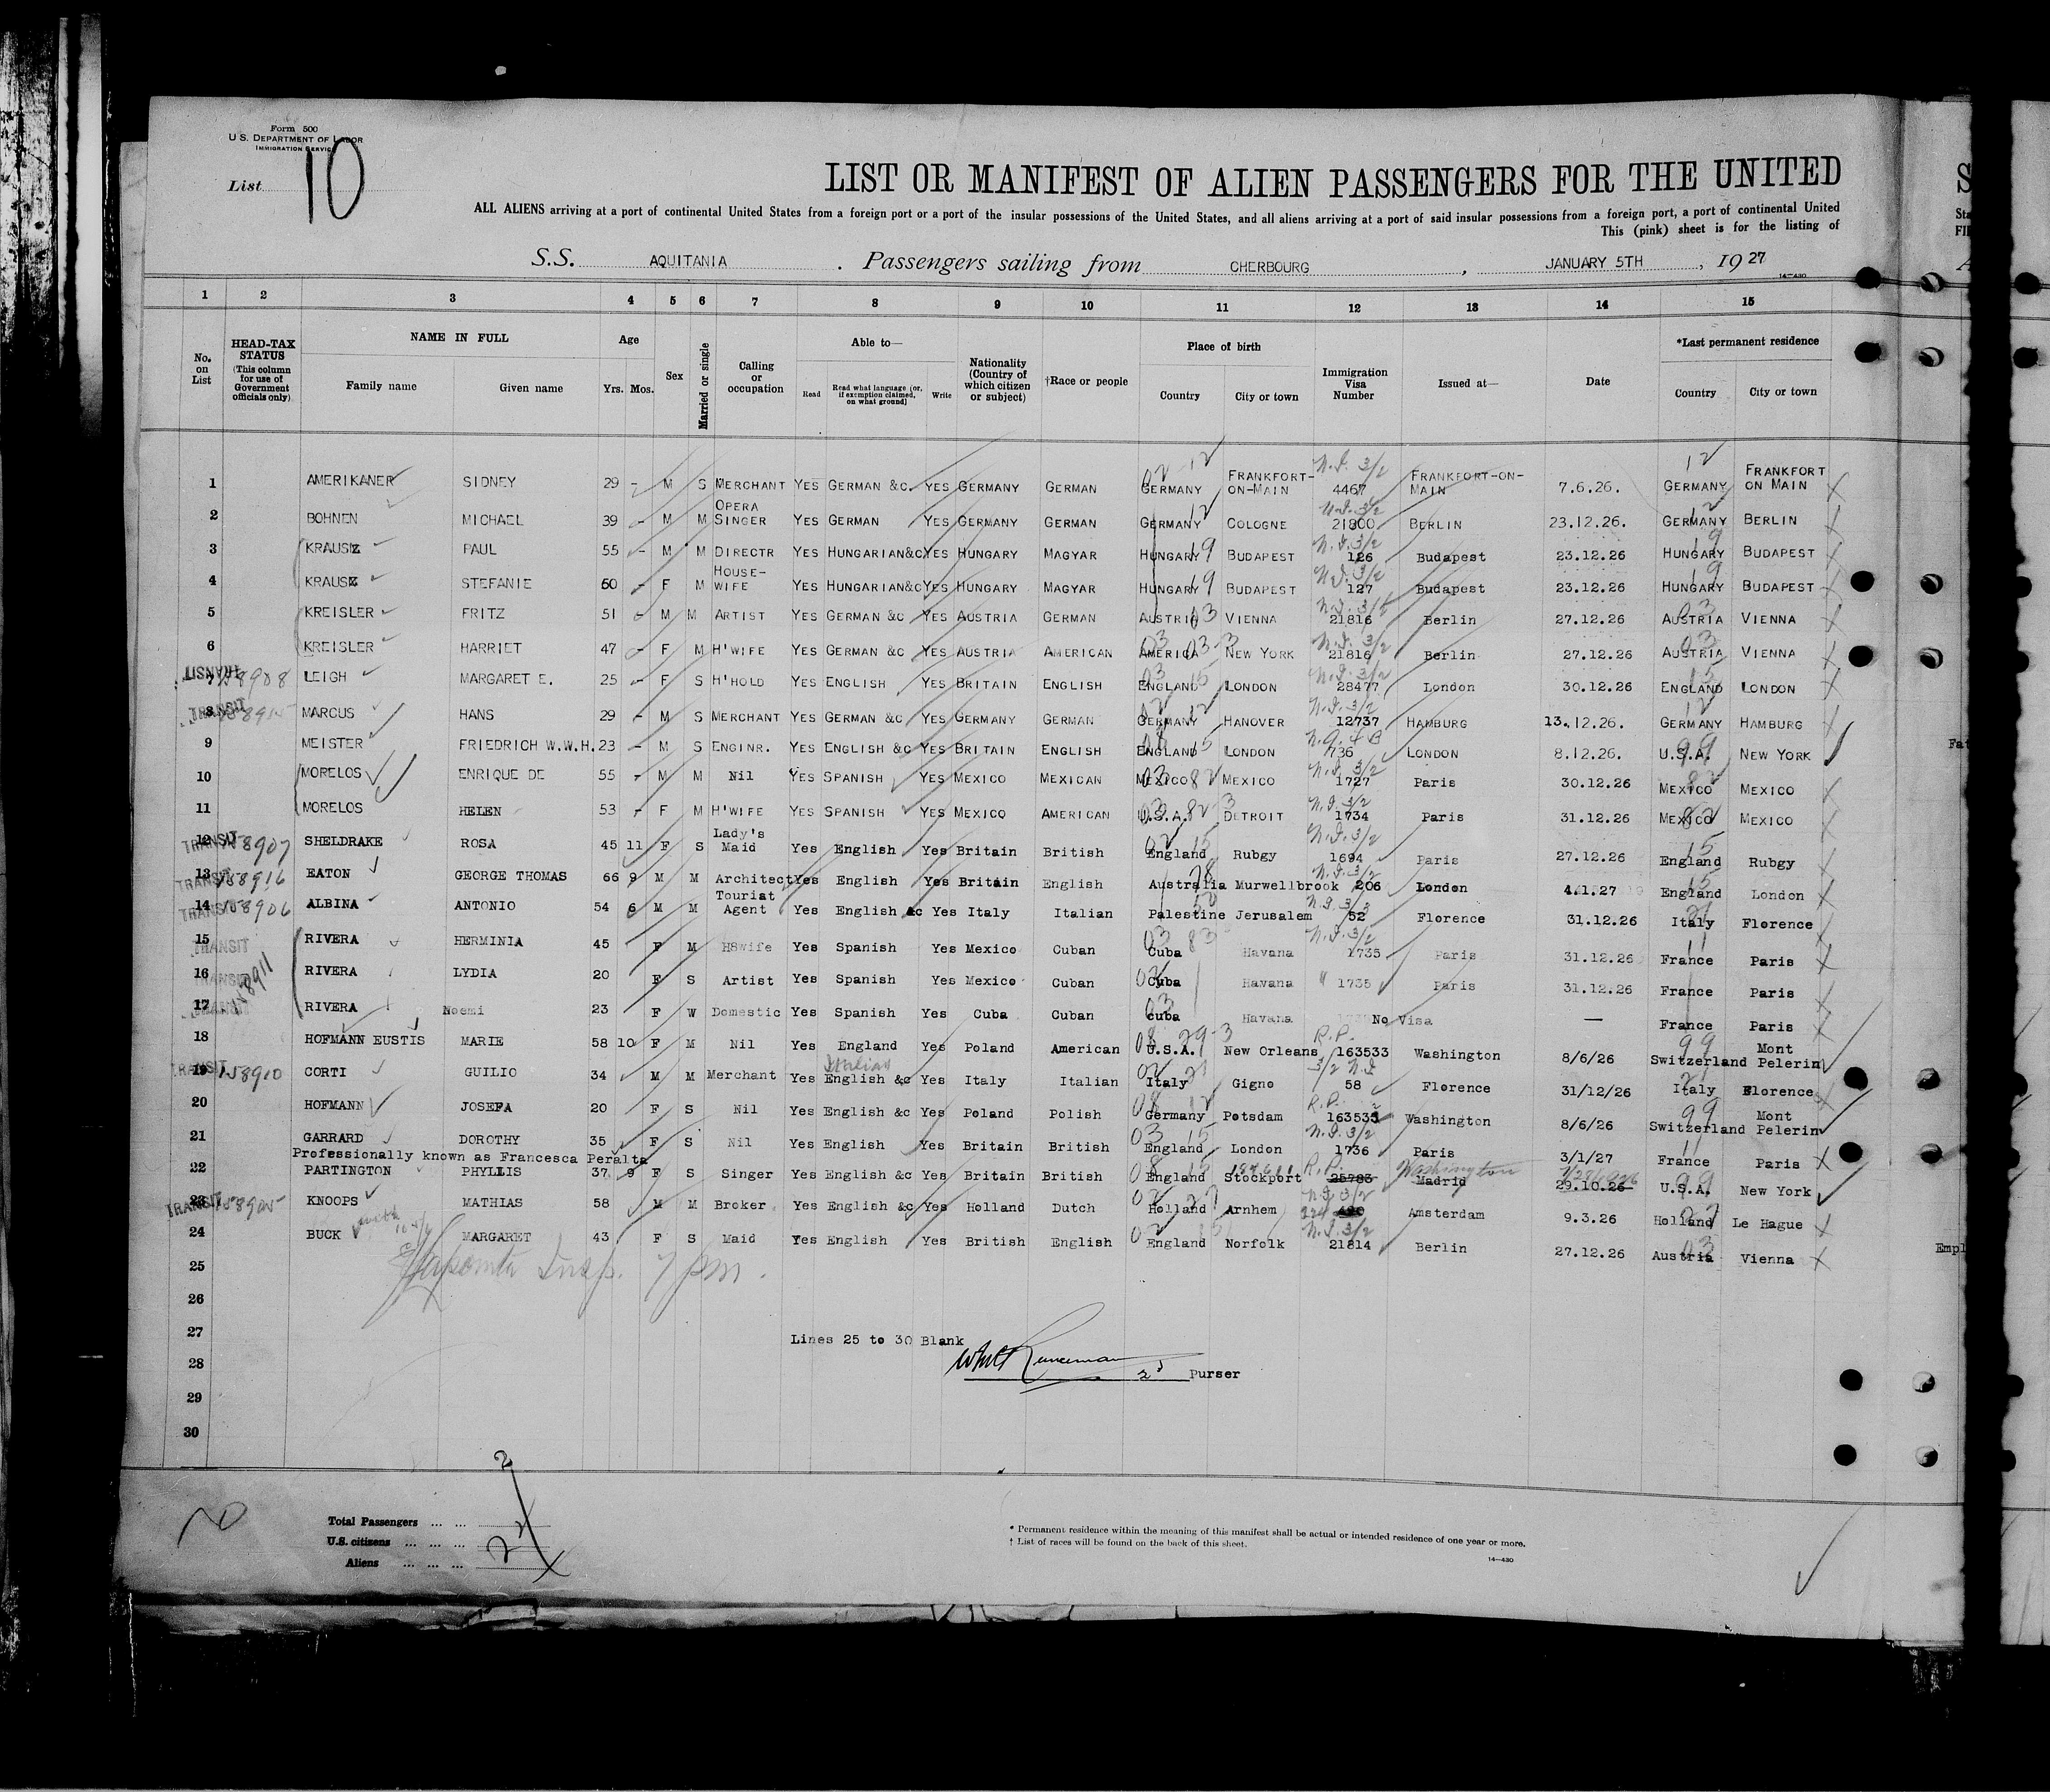 Form 500
U.S. DEPARTMENT OF LABOR
IMMIGRATION SERVICE
List 10
LIST OR MANIFEST OF ALIEN PASSENGERS FOR THE UNITED
ALL ALIENS arriving at a port of continental United States from a foreign port or a port of the insular possessions of the United States, and all aliens arriving at a port of said insular possessions from a foreign port, a port of continental United
This (pink) sheet is for the listing of
S.S. AQUITANIA. Passengers sailing from CHERBOURG, JANUARY 5TH, 1927
14-430
1 2 3 4 5 6 7 8 9 10 11 12 13 14 15
No. on List
HEAD-TAX STATUS (This column for use of Government officials only)
NAME IN FULL
Family name Given name
Age
Yrs. Mos.
Sex
Married or single
Calling or occupation
Able to—
Read
Read what language (or, if exemption claimed, on what ground)
Write
Nationality (Country of which citizen or subject)
†Race or people
Place of birth
Country City or town
Immigration Visa Number
Issued at—
Date
*Last permanent residence
Country City or town
1 AMERIKANER SIDNEY 29 - M S MERCHANT YES GERMAN &C. YES GERMANY GERMAN GERMANY FRANKFORT-ON-MAIN N.I. 3/2 4467 FRANKFORT-ON-MAIN 7.6.26. GERMANY FRANKFORT ON MAIN
2 BOHNEN MICHAEL 39 - M M OPERA SINGER YES GERMAN YES GERMANY GERMAN GERMANY COLOGNE N.I. 3/2 21800 BERLIN 23.12.26. GERMANY BERLIN
3 KRAUSZ PAUL 55 - M M DIRECTR YES HUNGARIAN&C YES HUNGARY MAGYAR HUNGARY BUDAPEST N.I. 3/2 126 Budapest 23.12.26 HUNGARY BUDAPEST
4 KRAUSZ STEFANIE 50 - F M HOUSE-WIFE YES HUNGARIAN&C YES HUNGARY MAGYAR HUNGARY BUDAPEST N.I. 3/2 127 Budapest 23.12.26 HUNGARY BUDAPEST
5 KREISLER FRITZ 51 - M M ARTIST YES GERMAN &C YES AUSTRIA GERMAN AUSTRIA VIENNA 21816 Berlin 27.12.26 AUSTRIA VIENNA
6 KREISLER HARRIET 47 - F M H'WIFE YES GERMAN &C YES AUSTRIA AMERICAN AMERICA NEW YORK N.I. 3/2 21816 Berlin 27.12.26 AUSTRIA VIENNA
TRANSIT 7 158908 LEIGH MARGARET E. 25 - F S H'HOLD YES ENGLISH YES BRITAIN ENGLISH ENGLAND LONDON N.I. 3/2 28477 London 30.12.26 ENGLAND LONDON
TRANSIT 8 MARCUS HANS 29 - M S MERCHANT YES GERMAN &C YES GERMANY GERMAN GERMANY HANOVER N.I. 3/2 12737 HAMBURG 13.12.26. GERMANY HAMBURG
9 MEISTER FRIEDRICH W.W.H. 23 - M S ENGINR. YES ENGLISH &C YES BRITAIN ENGLISH ENGLAND LONDON 736 LONDON 8.12.26. U.S.A. NEW YORK
10 MORELOS ENRIQUE DE 55 - M M Nil YES SPANISH YES MEXICO MEXICAN MEXICO MEXICO N.I. 3/2 1727 Paris 30.12.26 MEXICO MEXICO
11 MORELOS HELEN 53 - F M H'WIFE YES SPANISH YES MEXICO AMERICAN U.S.A. DETROIT N.I. 3/2 1734 Paris 31.12.26 MEXICO MEXICO
TRANSIT 12 158907 SHELDRAKE ROSA 45 11 F S Lady's Maid Yes English Yes Britain British England Rubgy N.I. 3/2 1694 Paris 27.12.26 England Rubgy
TRANSIT 13 158916 EATON GEORGE THOMAS 66 9 M M Architect Yes English Yes Britain English Australia Murwellbrook N.I. 3/2 206 London 4.1.27 England London
TRANSIT 14 158906 ALBINA ANTONIO 54 6 M M Tourist Agent Yes English &c Yes Italy Italian Palestine Jerusalem 52 Florence 31.12.26 Italy Florence
TRANSIT 15 RIVERA HERMINIA 45 F M H8wife Yes Spanish Yes Mexico Cuban Cuba Havana N.I. 3/2 1735 Paris 31.12.26 France Paris
TRANSIT 16 158911 RIVERA LYDIA 20 F S Artist Yes Spanish Yes Mexico Cuban Cuba Havana " 1735 Paris 31.12.26 France Paris
TRANSIT 17 RIVERA Noemi 23 F W Domestic Yes Spanish Yes Cuba Cuban Cuba Havana No Visa — France Paris
18 HOFMANN EUSTIS MARIE 58 10 F M Nil Yes England Yes Poland American U.S.A. New Orleans R.P. 163533 Washington 8/6/26 Switzerland Mont Pelerin
TRANSIT 19 158910 CORTI GUILIO 34 M M Merchant Yes Italian English &c Yes Italy Italian Italy Gigno 3/2 N.I. 58 Florence 31/12/26 Italy Florence
20 HOFMANN JOSEFA 20 F S Nil Yes English &c Yes Poland Polish Germany Potsdam R.P. 163533 Washington 8/6/26 Switzerland Mont Pelerin
21 GARRARD DOROTHY 35 F S Nil Yes English Yes Britain British England London N.I. 3/2 1736 Paris 3/1/27 France Paris
Professionally known as Francesca Peralta
22 PARTINGTON PHYLLIS 37 9 F S Singer Yes English &c Yes Britain British England Stockport R.P. 25783 Washington Madrid 29.10.26 U.S.A. New York
TRANSIT 23 158905 KNOOPS MATHIAS 58 M M Broker Yes English &c Yes Holland Dutch Holland Arnhem N.I. 3/2 Amsterdam 9.3.26 Holland Le Hague
24 BUCK MARGARET 43 F S Maid Yes English Yes British English England Norfolk N.I. 3/2 21814 Berlin 27.12.26 Austria Vienna
25
Insp. 7 pm.
26
27
Lines 25 to 30 Blank
28
2d Purser
29
30
Total Passengers ... ...
U.S. citizens ... ... ...
Aliens ... ... ...
* Permanent residence within the meaning of this manifest shall be actual or intended residence of one year or more.
† List of races will be found on the back of this sheet.
14-430